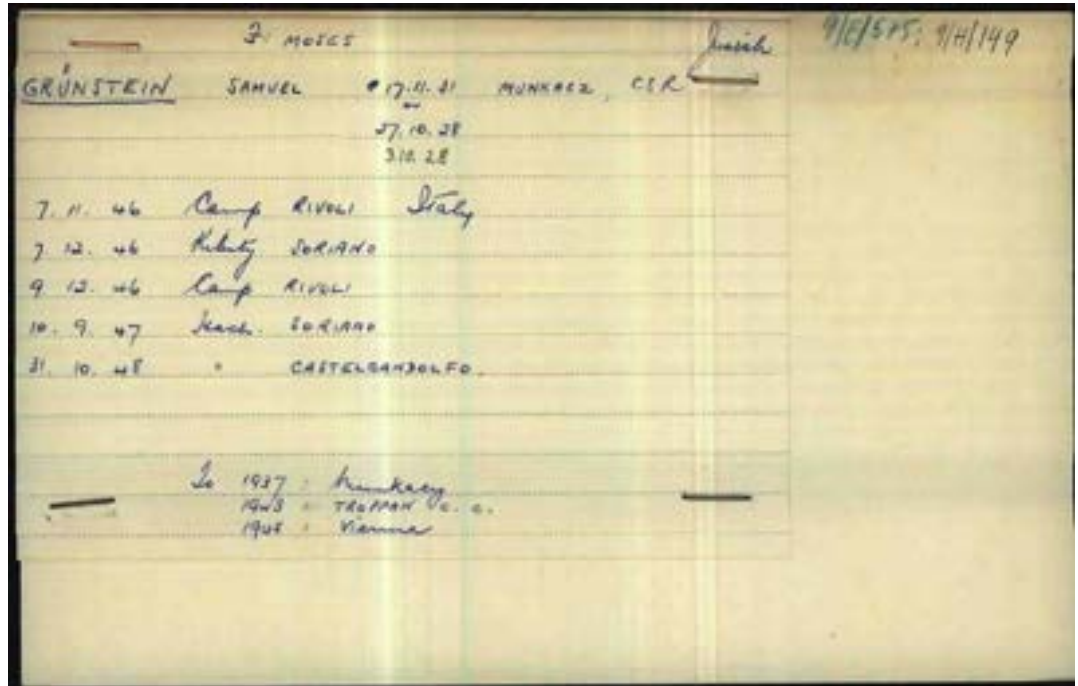 F: MOSES
Jewish
9/E/575; 9/H/149
GRÜNSTEIN SAMUEL * 17.11.31 MUNKACZ, CSR
27.10.28
3.10.28
7. 11. 46 Camp RIVOLI Italy
7. 12. 46 SORIANO
9. 12. 46 Camp RIVOLI
10. 9. 47 Hach. SORIANO
31. 10. 48 " CASTELGANDOLFO.
To 1937 : Munkacz
TROPPAU C. C.
: Vienna